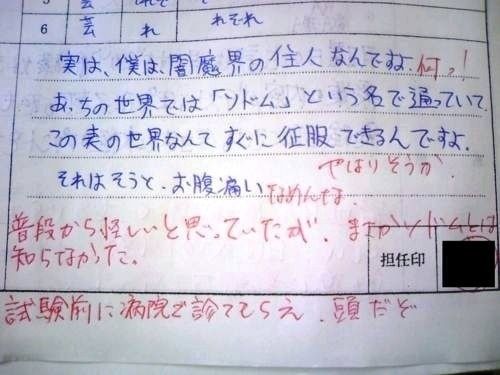 6 芸 れ れそれ
実は、僕は、闇魔界の住人なんですよ。何っ!
あっちの世界では「ソドム」という名で通っていて、
この表の世界なんてすぐに征服できるんですよ。
やはりそうか。
それはそうと、お腹痛い なめんな。
普段から怪しいと思っていたが、まさかソドムとは
知らなかった。
担任印
試験前に病院で診てもらえ。頭だぞ